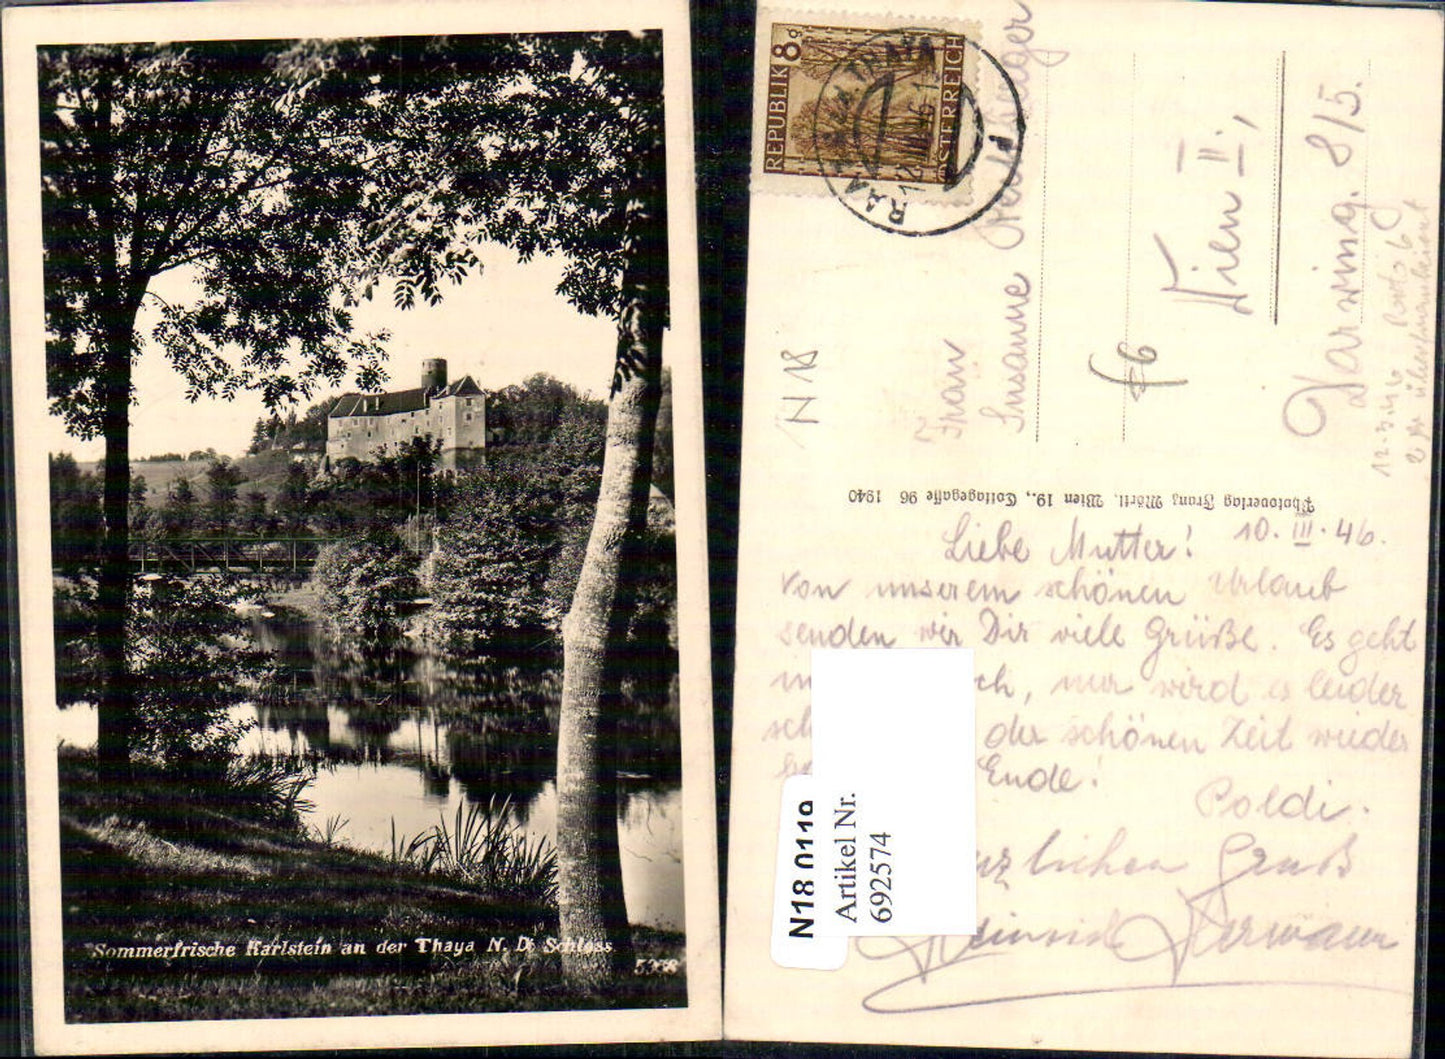 Sommerfrische Karlstein an der Thaya N. D. Schloss
5388
REPUBLIK 8g
ÖSTERREICH
RAABS A.D. THAYA
N 18
Frau
Susanne
Wien II.,
Darwing. 8/5.
f6
12.3.46
Photoverlag Franz Mörtl, Wien 19., Cottagegasse 96 1940
10. III. 46.
Liebe Mutter!
von unserem schönen Urlaub
senden wir Dir viele Grüße. Es geht
ch, nur wird es leider
sch der schönen Zeit wieder
Ende!
Poldi.
rzlichen Gruß
N18 0119
Artikel Nr.
692574